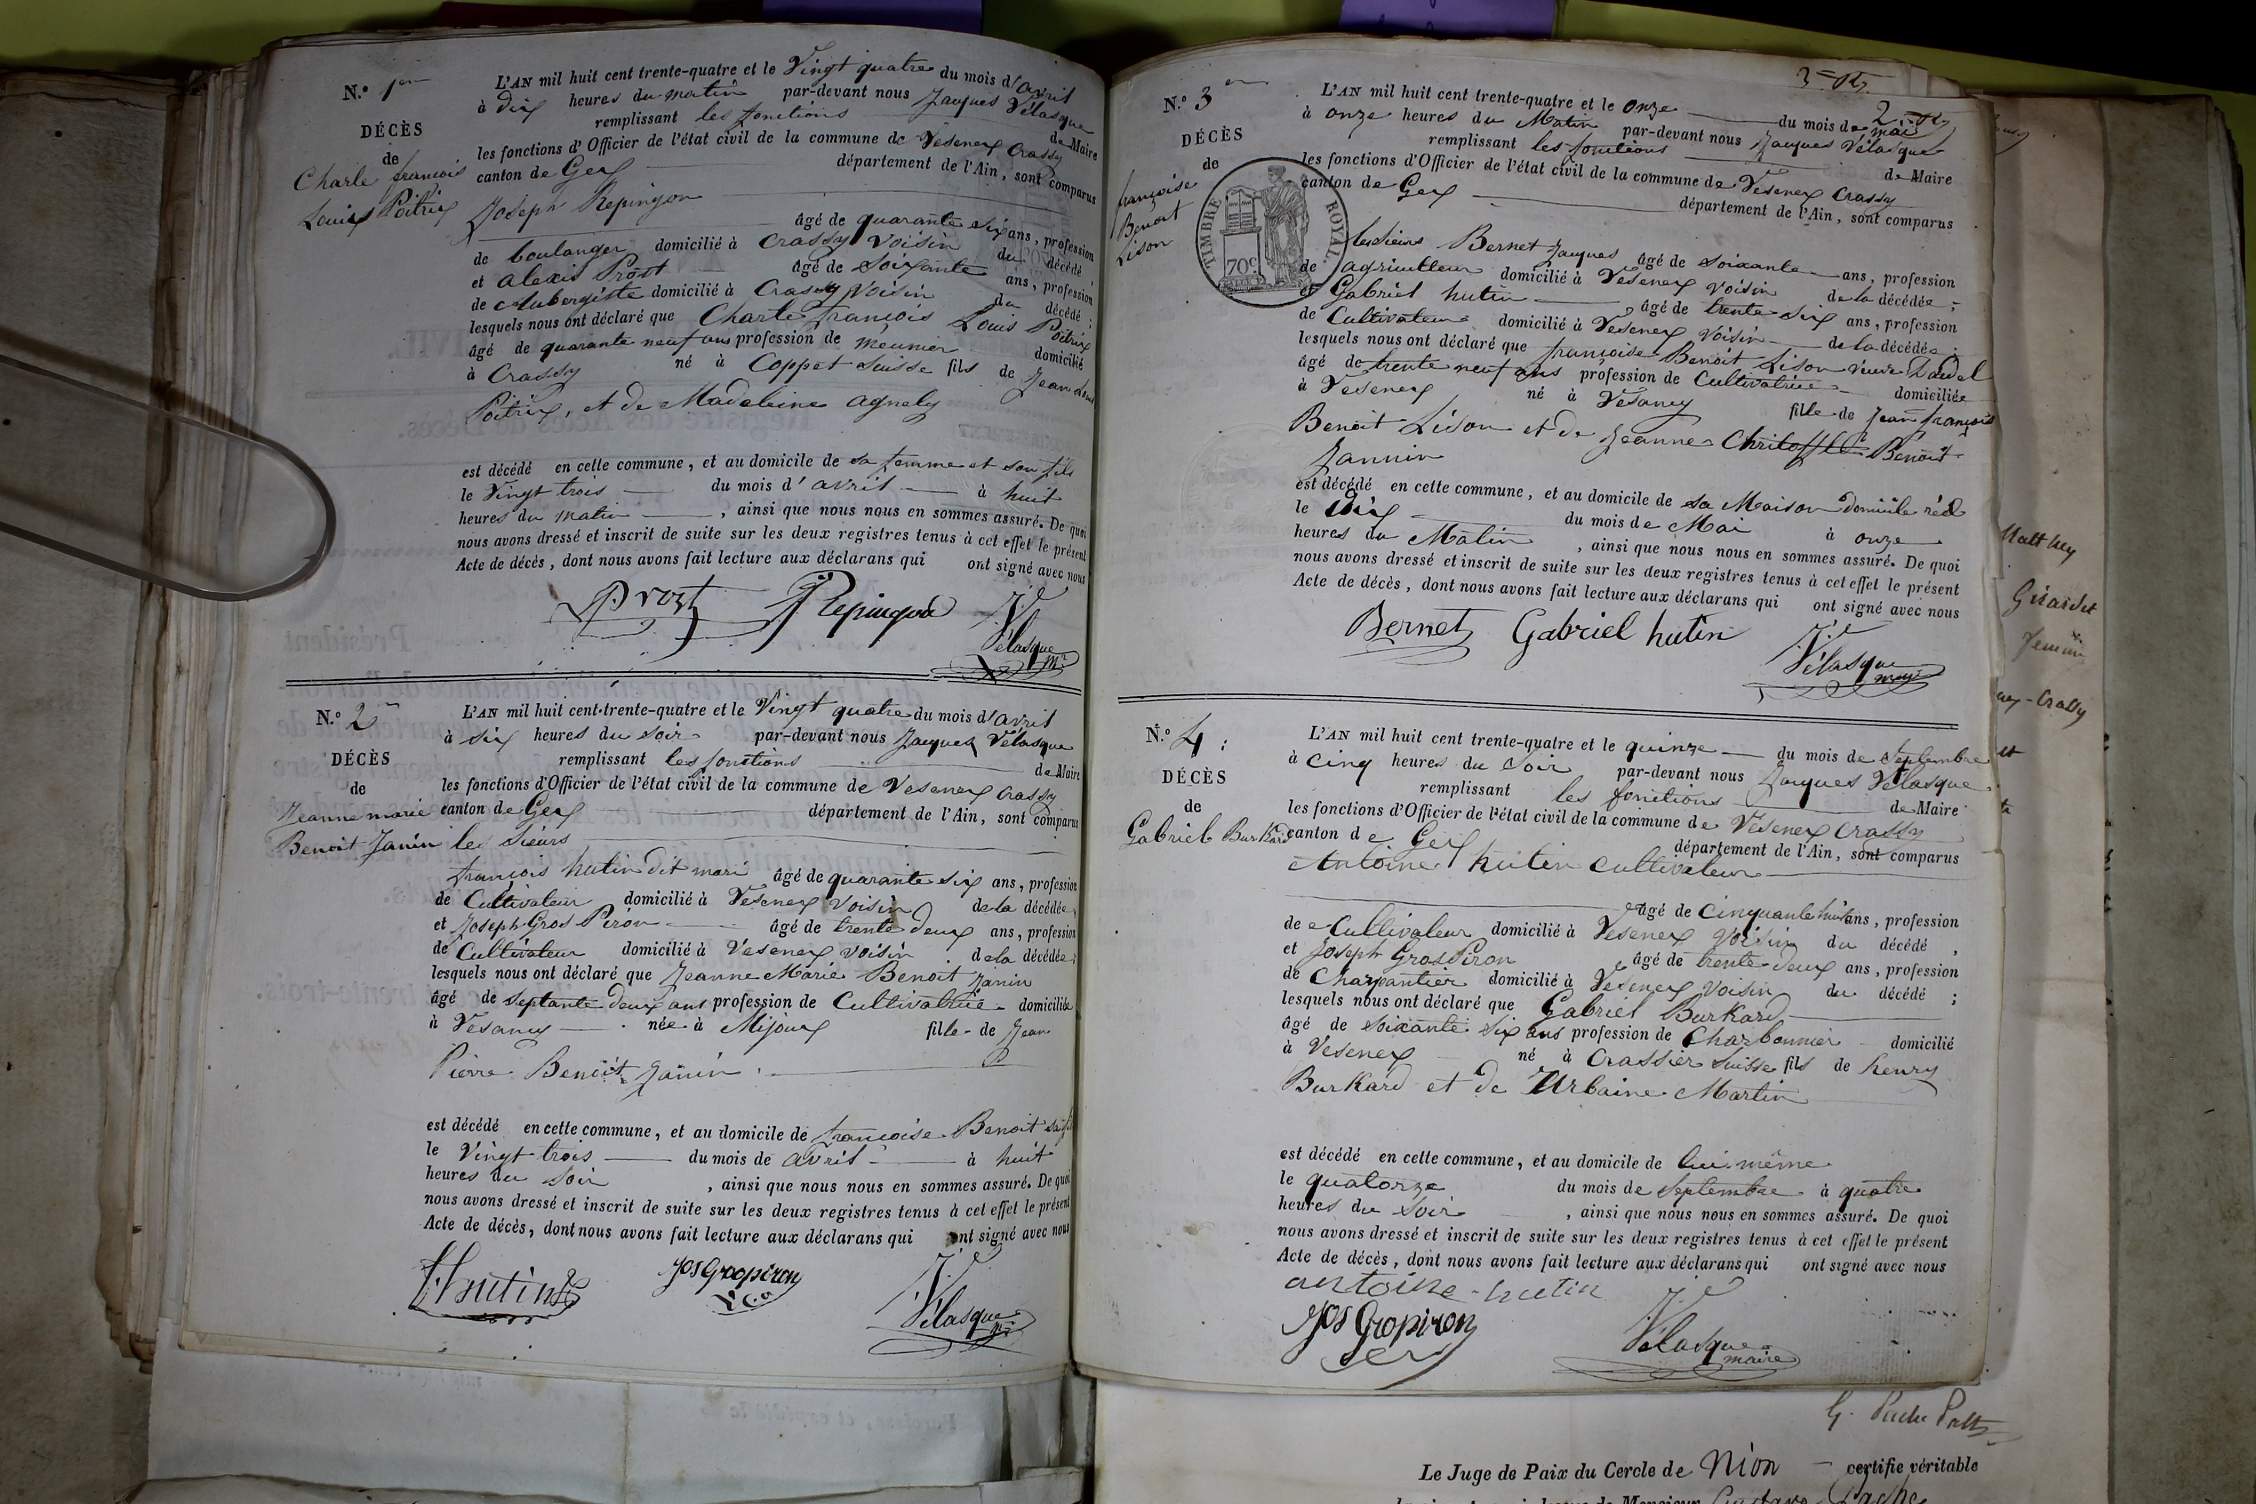 N.º 1er
DÉCÈS
de
Charle francois
Louis Poitrix
L'AN mil huit cent trente-quatre et le Vingt quatre du mois d'avril
à dix heures du matin par-devant nous Jacques Vélasque
remplissant les fonctions de Maire
les fonctions d'Officier de l'état civil de la commune de Vesenex Crassy
canton de Gex département de l'Ain, sont comparus
Joseph Repingon
âgé de quarante six ans, profession
de boulanger domicilié à Crassy Voisin du décédé
et alexis Prost âgé de Soixante ans, profession
de Aubergiste domicilié à Crassy Voisin du décédé ;
lesquels nous ont déclaré que Charle francois Louis Poitrix
âgé de quarante neuf ans profession de meunier domicilié
à Crassy né à Coppet Suisse fils de Jean Louis
Poitrix, et de Madeleine agnely
est décédé en cette commune, et au domicile de sa femme et son fils
le Vingt trois du mois d'avril à huit
heures du matin , ainsi que nous nous en sommes assuré. De quoi
nous avons dressé et inscrit de suite sur les deux registres tenus à cet effet le présent
Acte de décès, dont nous avons fait lecture aux déclarans qui ont signé avec nous
Prost Repingon Vélasque
N.º 2
DÉCÈS
de
Jeanne marie
Benoit Janin
L'AN mil huit cent trente-quatre et le Vingt quatre du mois d'avril
à six heures du soir par-devant nous Jacques Vélasque
remplissant les fonctions de Maire
les fonctions d'Officier de l'état civil de la commune de Vesenex Crassy
canton de Gex département de l'Ain, sont comparus
les Sieurs
francois hutin dit mari âgé de quarante six ans, profession
de Cultivateur domicilié à Vesenex Voisin de la décédée
et Joseph Gros Piron âgé de trente deux ans, profession
de Cultivateur domicilié à Vesenex voisin de la décédée ;
lesquels nous ont déclaré que Jeanne Marie Benoit Janin
âgé de septante deux ans profession de Cultivatrice domiciliée
à Vesancy née à Mijoux fille de Jean
Pierre Benoit Janin
est décédé en cette commune, et au domicile de francoise Benoit sa
le Vingt trois du mois de avril à huit
heures du Soir , ainsi que nous nous en sommes assuré. De quoi
nous avons dressé et inscrit de suite sur les deux registres tenus à cet effet le présent
Acte de décès, dont nous avons fait lecture aux déclarans qui ont signé avec nous
Hutin Jos Gropiron Vélasque
N.º 3
DÉCÈS
de
françoise
Benoit
Lison
TIMBRE ROYAL.
70c
L'AN mil huit cent trente-quatre et le onze du mois de mai
à onze heures du Matin par-devant nous Jacques Vélasque
remplissant les fonctions de Maire
les fonctions d'Officier de l'état civil de la commune de Vesenex Crassy
canton de Gex département de l'Ain, sont comparus
les sieurs Bernet Jacques âgé de soixante ans, profession
de agriculteur domicilié à Vesenex voisin de la décédée ;
et Gabriel hutin âgé de trente six ans, profession
de Cultivateur domicilié à Vesenex Voisin de la décédée ;
lesquels nous ont déclaré que francoise Benoit Lison veuve
âgé de trente neuf ans profession de Cultivatrice domiciliée
à Vesenex né à Vesancy fille de Jean françois
Benoit Lison et de Jeanne Chritoffle Benoit
Jannin
est décédé en cette commune, et au domicile de sa Maison domicile réel
le Dix du mois de Mai à onze
heures du Matin , ainsi que nous nous en sommes assuré. De quoi
nous avons dressé et inscrit de suite sur les deux registres tenus à cet effet le présent
Acte de décès, dont nous avons fait lecture aux déclarans qui ont signé avec nous
Bernet Gabriel hutin Vélasque
N.º 4
DÉCÈS
de
Gabriel Burkard
L'AN mil huit cent trente-quatre et le quinze du mois de septembre
à cinq heures du Soir par-devant nous Jacques Vélasque
remplissant les fonctions de Maire
les fonctions d'Officier de l'état civil de la commune de Vesenex Crassy
canton de Gex département de l'Ain, sont comparus
Antoine hutin cultivateur
âgé de cinquante huit ans, profession
de Cultivateur domicilié à Vesenex Voisin du décédé ,
et Joseph Gros Piron âgé de trente deux ans, profession
de Charpantier domicilié à Vesenex Voisin du décédé ;
lesquels nous ont déclaré que Gabriel Burkard
âgé de soixante six ans profession de Charbonnier domicilié
à Vesenex né à Crassier Suisse fils de henry
Burkard et de Urbaine Martin
est décédé en cette commune, et au domicile de lui même
le quatorze du mois de septembre à quatre
heures du Soir , ainsi que nous nous en sommes assuré. De quoi
nous avons dressé et inscrit de suite sur les deux registres tenus à cet effet le présent
Acte de décès, dont nous avons fait lecture aux déclarans qui ont signé avec nous
antoine hutin
Jos Gropiron Vélasque
maire
Matthey
Girardet
Le Juge de Paix du Cercle de Nion certifie véritable